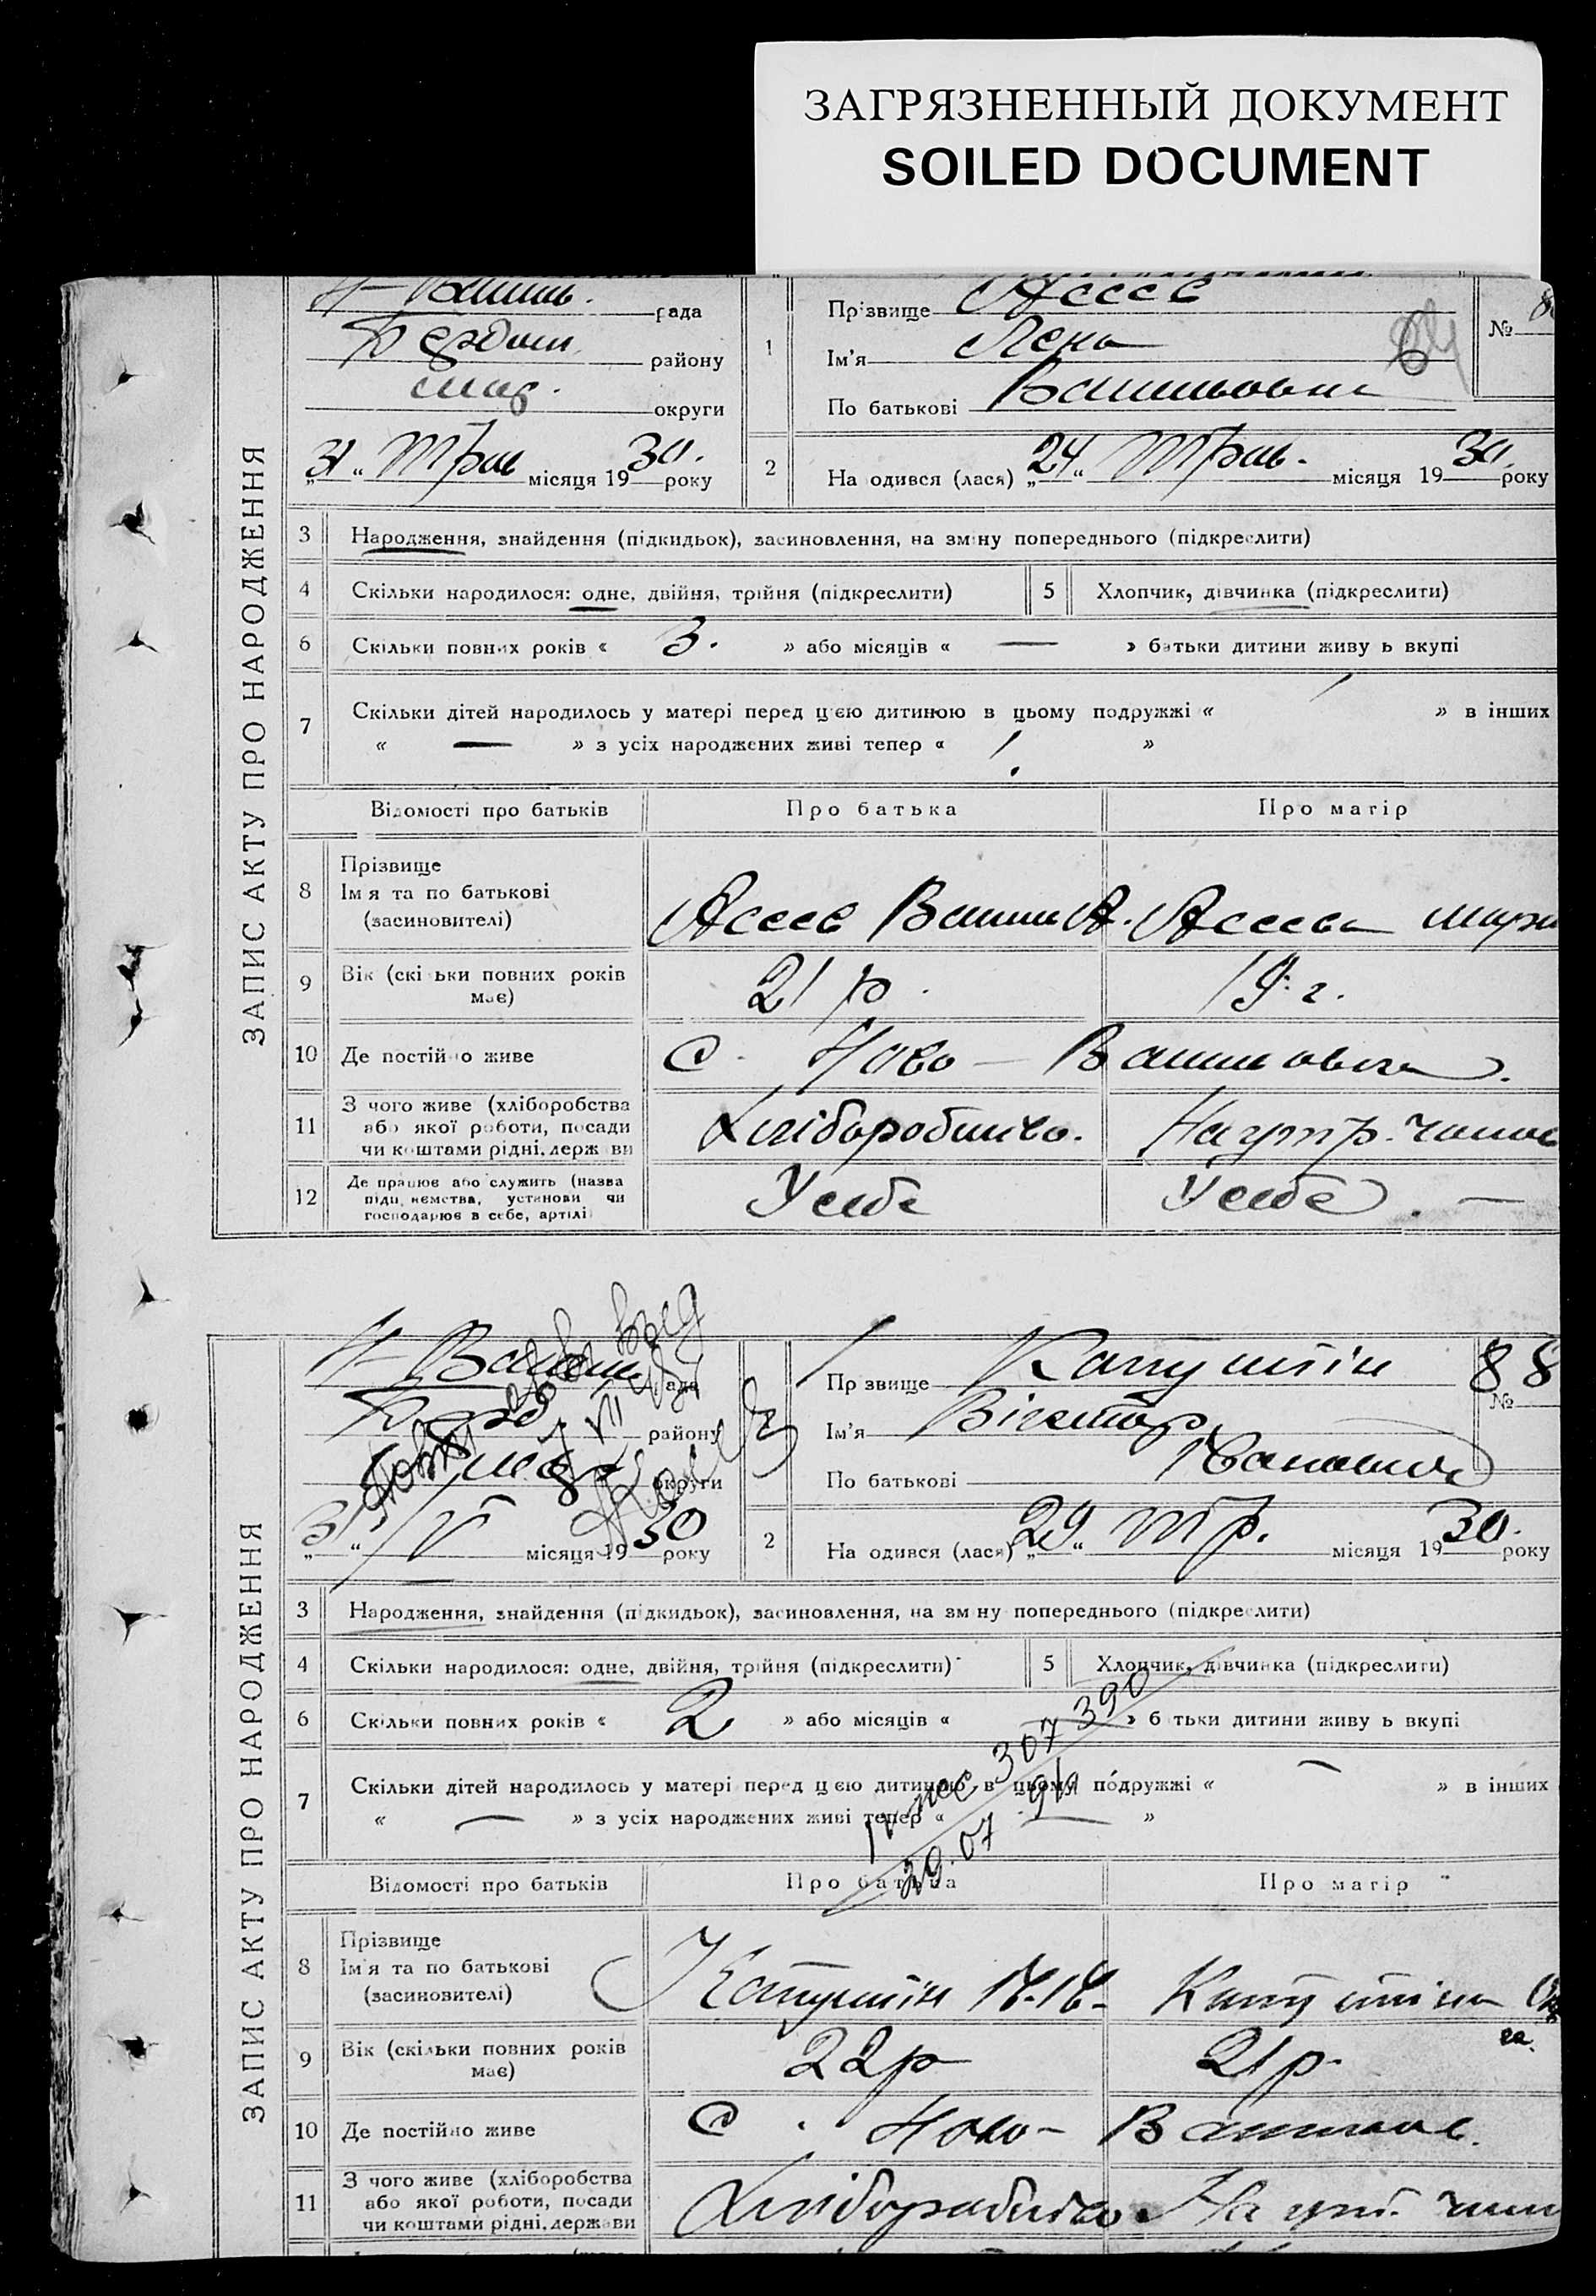 ЗАГРЯЗНЕННЫЙ ДОКУМЕНТ
SOILED DOCUMENT
ЗАПИС АКТУ ПРО НАРОДЖЕННЯ
рада
району
округи
31 Трав місяця 1930. року
1
Прізвище Асеев
Ім'я
По батькові
№
2
На одився (лася) „24“ Трав. місяця 1930. року
3 Народження, знайдення (підкидьок), засиновлення, на зміну попереднього (підкреслити)
4 Скільки народилося: одне, двійня, трійня (підкреслити)
5 Хлопчик, дівчинка (підкреслити)
6 Скільки повних років « 3. » або місяців « — » батьки дитини живу ь вкупі
7 Скільки дітей народилось у матері перед цією дитиною в цьому подружжі « » в інших
« — » з усіх народжених живі тепер « »
Відомості про батьків Про батька Про матір
8 Прізвище
Ім я та по батькові
(засиновителі)
Асеев А. Асеева
9 Вік (скі ьки повних років
має)
21 р. 19. г.
10 Де постійно живе
с. Ново - Васильовка.
11 З чого живе (хліборобства
або якої роботи, посади
чи коштами рідні, держ ви
Хліборобство.
12 Де працює або служить (назва
підп иємства, установи чи
господарює в себе, артілі
У себе У себе. —
ЗАПИС АКТУ ПРО НАРОДЖЕННЯ
рада
району
округи
„31“ V місяця 1930 року
Пр звище Капустін
Ім'я Віктор
По батькові Іванович
88
№
2
На одився (лася) „29“ Тр. місяця 1930. року
3 Народження, знайдення (підкидьок), засиновлення, на зм ну попереднього (підкреслити)
4 Скільки народилося: одне, двійня, трійня (підкреслити)
5 Хлопчик, дівчинка (підкреслити)
6 Скільки повних років « 2 » або місяців « — » б тьки дитини живу ь вкупі
307 390
7 Скільки дітей народилось у матері перед цією дитиною в цьому подружжі « — » в інших
« — » з усіх народжених живі тепер « — »
29.07
Відомості про батьків Про батька Про матір
8 Прізвище
Ім'я та по батькові
(засиновителі)
Капустін Капустіна
9 Вік (скільки повних років
має)
22р 21р.
10 Де постійно живе
с. Ново - Васильов.
11 З чого живе (хліборобства
або якої роботи, посади
чи коштами рідні, держави
Хліборобство.